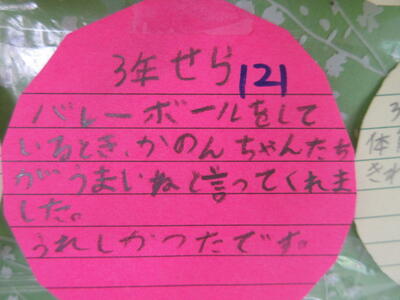 3年せら 121
バレーボールをして
いるとき、かのんちゃんたち
がうまいねと言ってくれま
した。
うれしかったです。
3
体
きれ